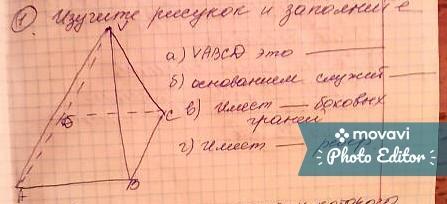 ① Изучите рисунок и заполните
а) VABCD это ——
б) основанием служит ——
в) Имеет — боковых
граней
г) Имеет —
D
C
A
B
movavi
Photo Editor